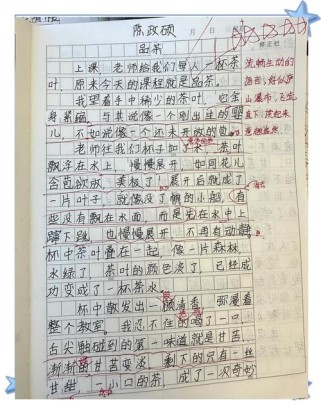 陈政硕
月 日
品茶
修正栏
上课,老师给我们每人一杯茶
叶,原来今天的课程就是品茶。
我望着手中稀少的茶叶,
身紧缩,与其说像一个刚出生的婴
儿,不如说像一个还未开放的
老师往我们杯子加了水,茶叶
飘浮在水上,慢慢展开,如同花儿
含苞欲放,美极了!展开后就成了
一片叶子,就像没了帆的小船,有
些没有飘在水面,而是先在水中上
蹿下跳,也慢慢展开,不再有动静
杯中茶叶叠在一起,像一片森林,
水绿了,茶叶的颜色淡了,已经成
功变成了一杯茶水。
杯中散发出一 清香,弥漫着
整个教室。我忍不住的喝了一口,
舌尖触碰到的第一味道就是甘苦,
渐渐的甘苦变淡,剩下的只有一丝
甘甜,一小口的茶,成了一次奇妙
流畅生动的
语言,好似庐
山瀑布,飞流
直下,读起来